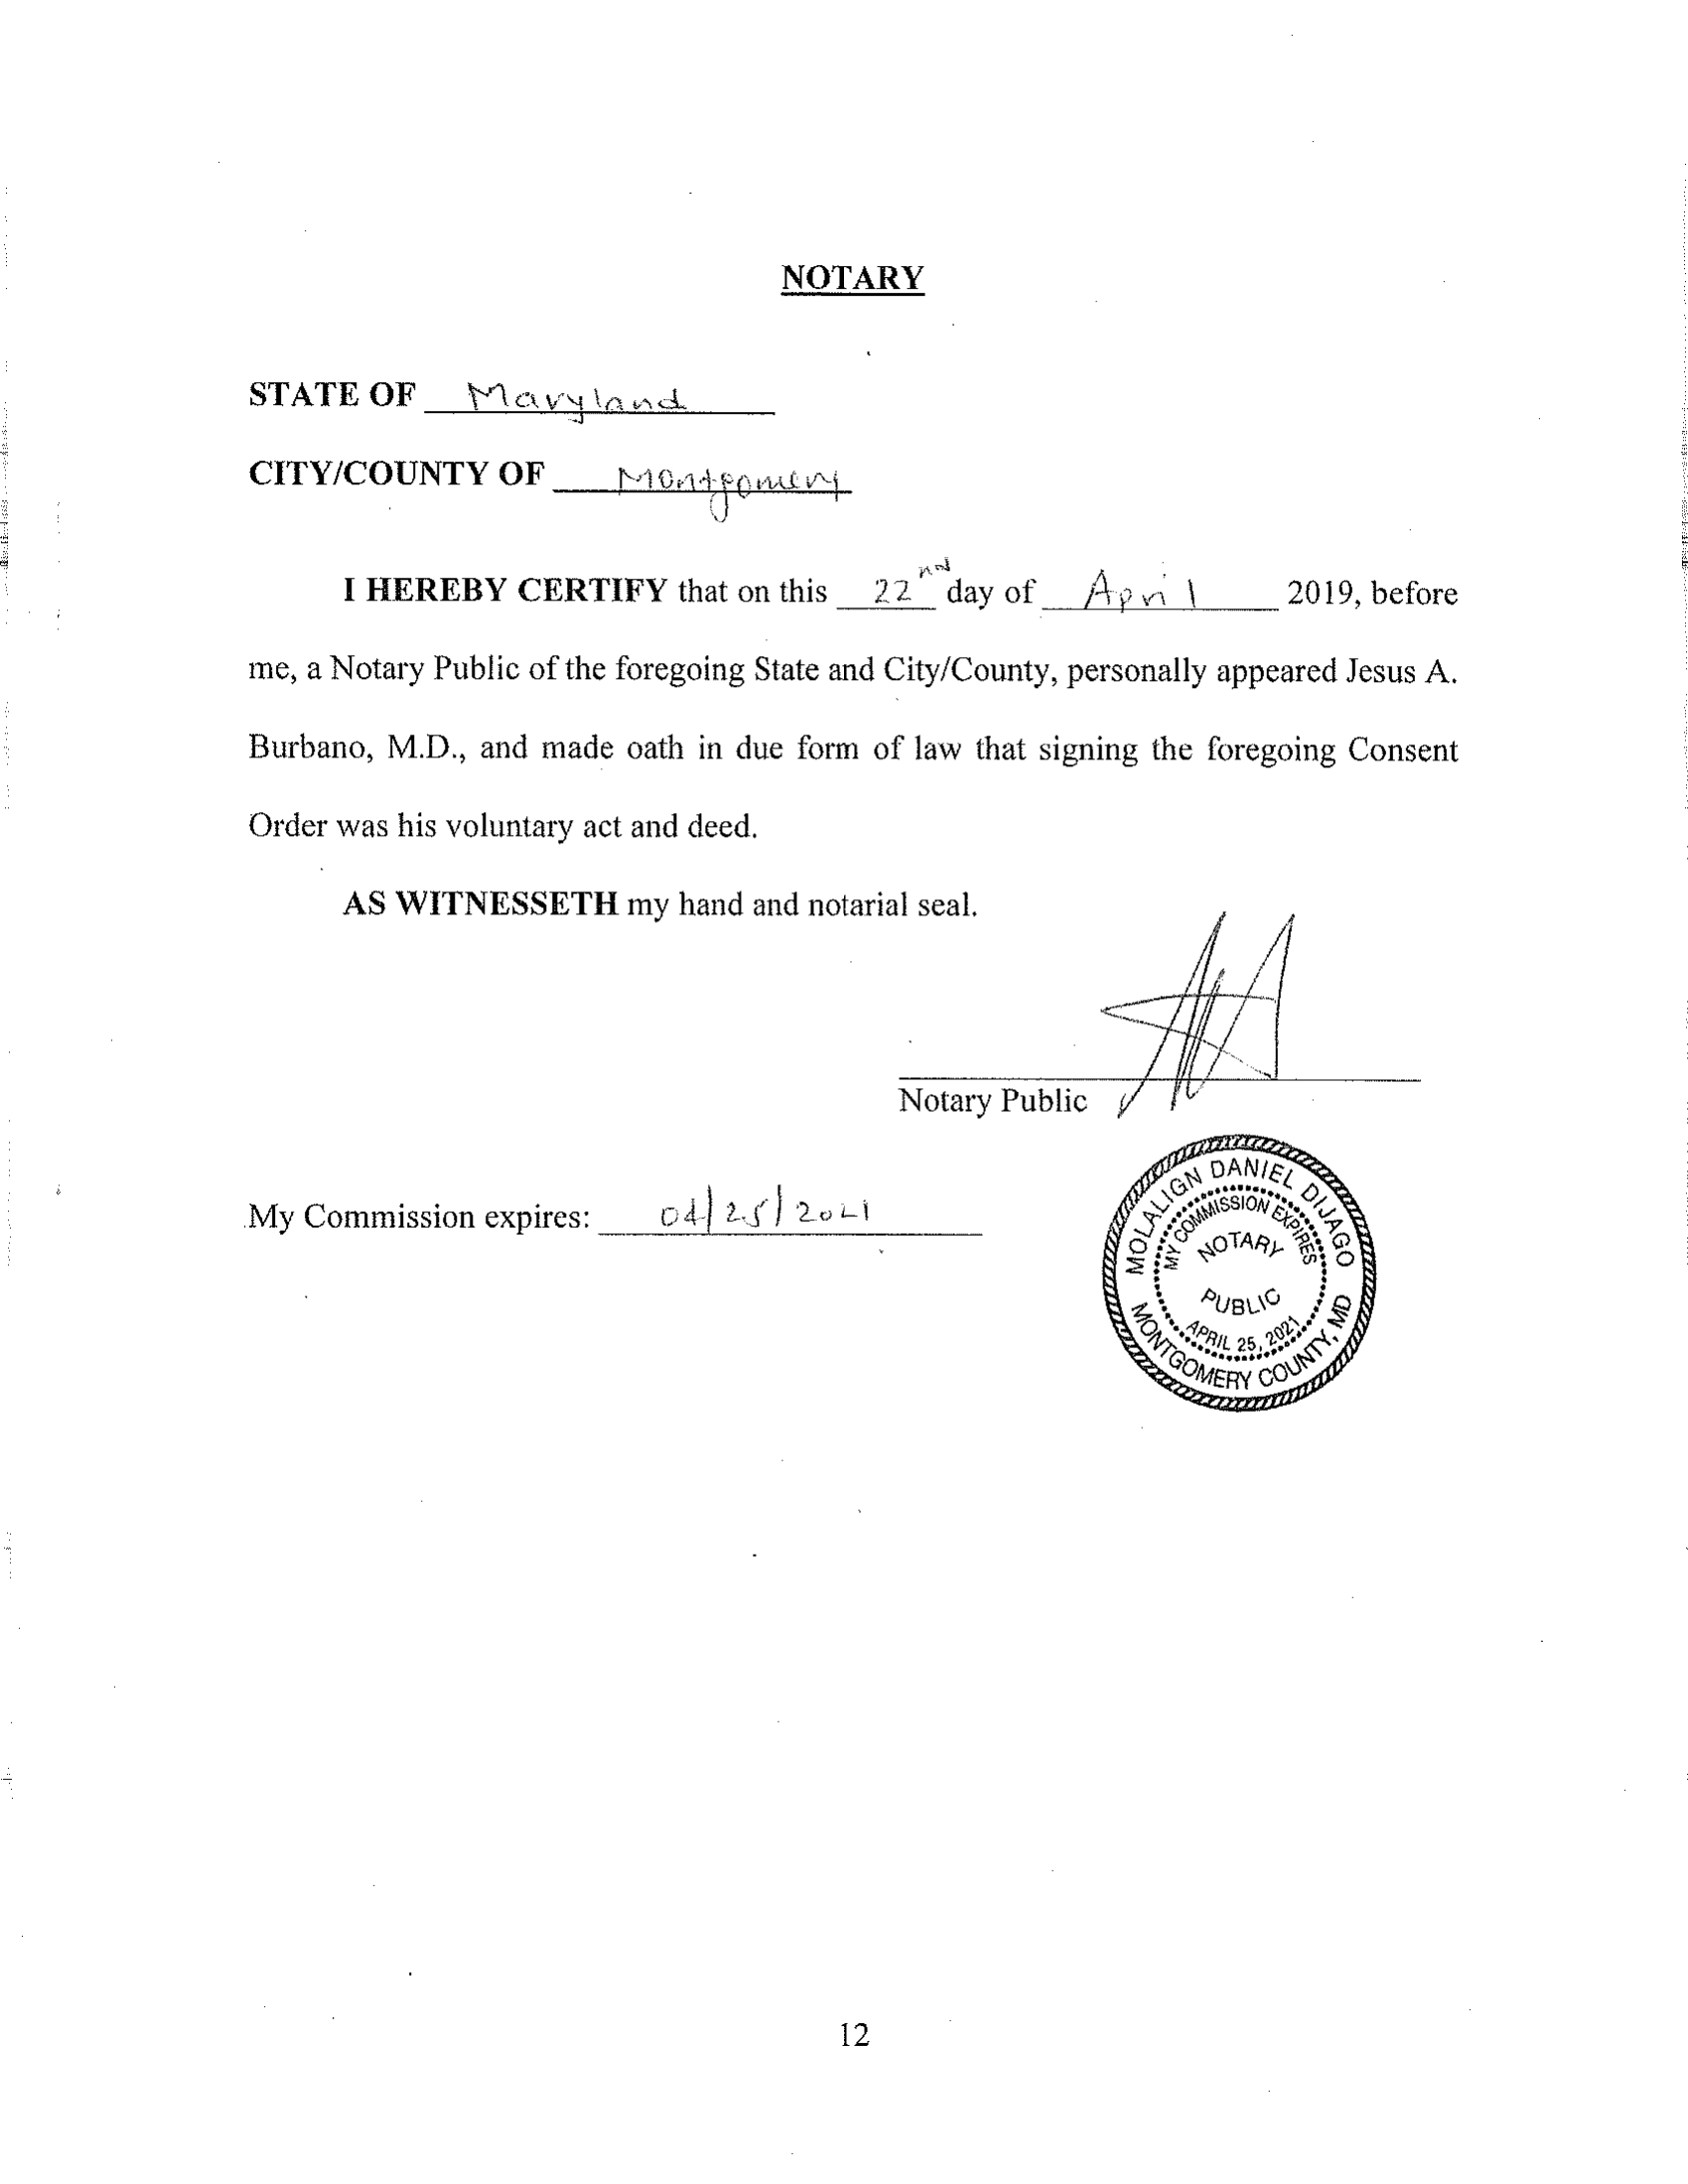 NOTARY
STATE OF Maryland
CITY/COUNTY OF Montgomery
I HEREBY CERTIFY that on this 22nd day of April 2019, before
me, a Notary Public of the foregoing State and City/County, personally appeared Jesus A.
Burbano, M.D., and made oath in due form of law that signing the foregoing Consent
Order was his voluntary act and deed.
AS WITNESSETH my hand and notarial seal.
Notary Public
My Commission expires: 04/25/2021
MOLALIGN DANIEL DIJAGO
MY COMMISSION EXPIRES
NOTARY
PUBLIC
APRIL 25, 2021
MONTGOMERY COUNTY, MD
12